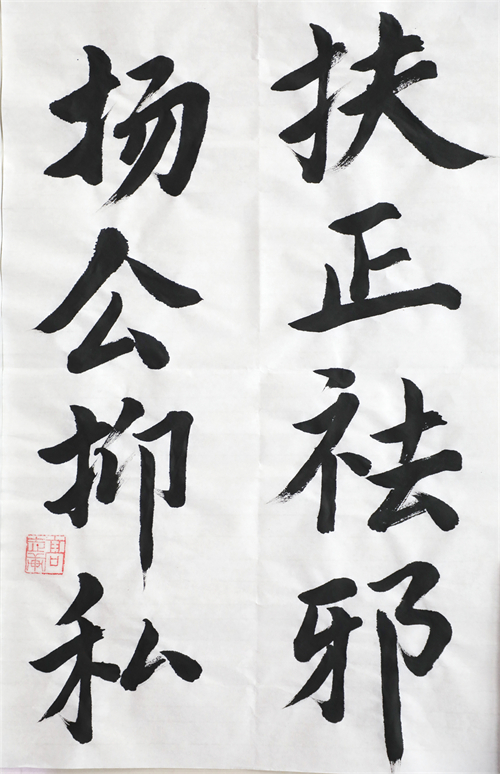 扶正祛邪
扬公抑私